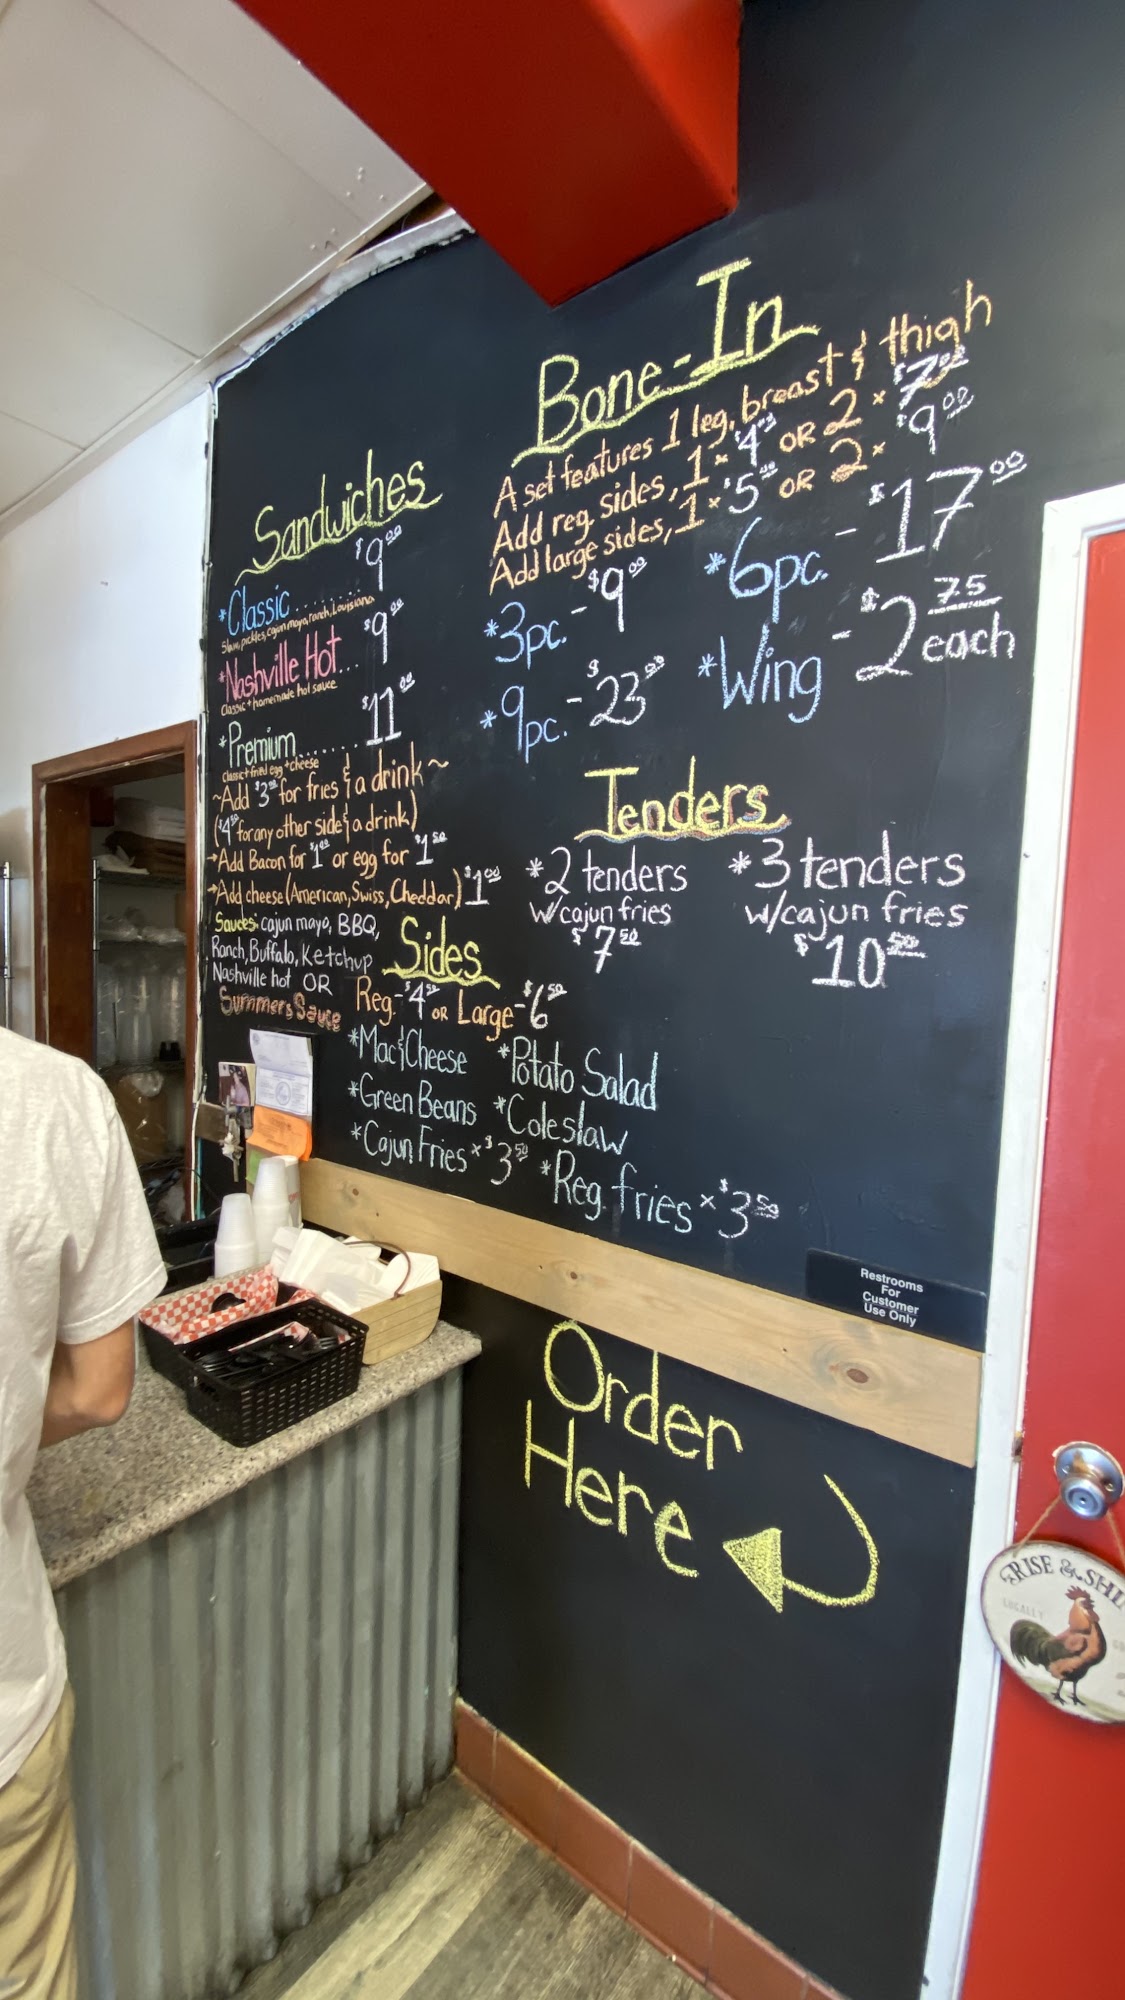 Sandwiches
*Classic......$9.00
Slaw, pickles, cajun mayo, ranch, Louisiana
*Nashville Hot...$9.00
Classic + homemade hot sauce
*Premium.......$11.00
Classic + fried egg + cheese
~Add $3.00 for fries & a drink~
($4.50 for any other side & a drink)
→Add Bacon for $1.00 or egg for $1.50
→Add cheese (American, Swiss, Cheddar) $1.00
Sauces: cajun mayo, BBQ,
Ranch, Buffalo, Ketchup
Nashville hot OR
Summers Sauce
Bone-In
A set features 1 leg, breast & thigh
Add reg. sides, 1 × $4.00 OR 2 × $7.00
Add large sides, 1 × $5.00 OR 2 × $9.00
*3pc. - $9.00
*6pc. - $17.00
*9pc. - $23.00
*Wing - $2.75 each
Tenders
*2 tenders
w/cajun fries
$7.50
*3 tenders
w/cajun fries
$10.50
Sides
Reg - $4.50 OR Large - $6.50
*Mac & Cheese *Potato Salad
*Green Beans *Coleslaw
*Cajun Fries × $3.50 *Reg. fries × $3.50
Restrooms
For
Customer
Use Only
Order
Here
RISE & SHI
LOCALLY